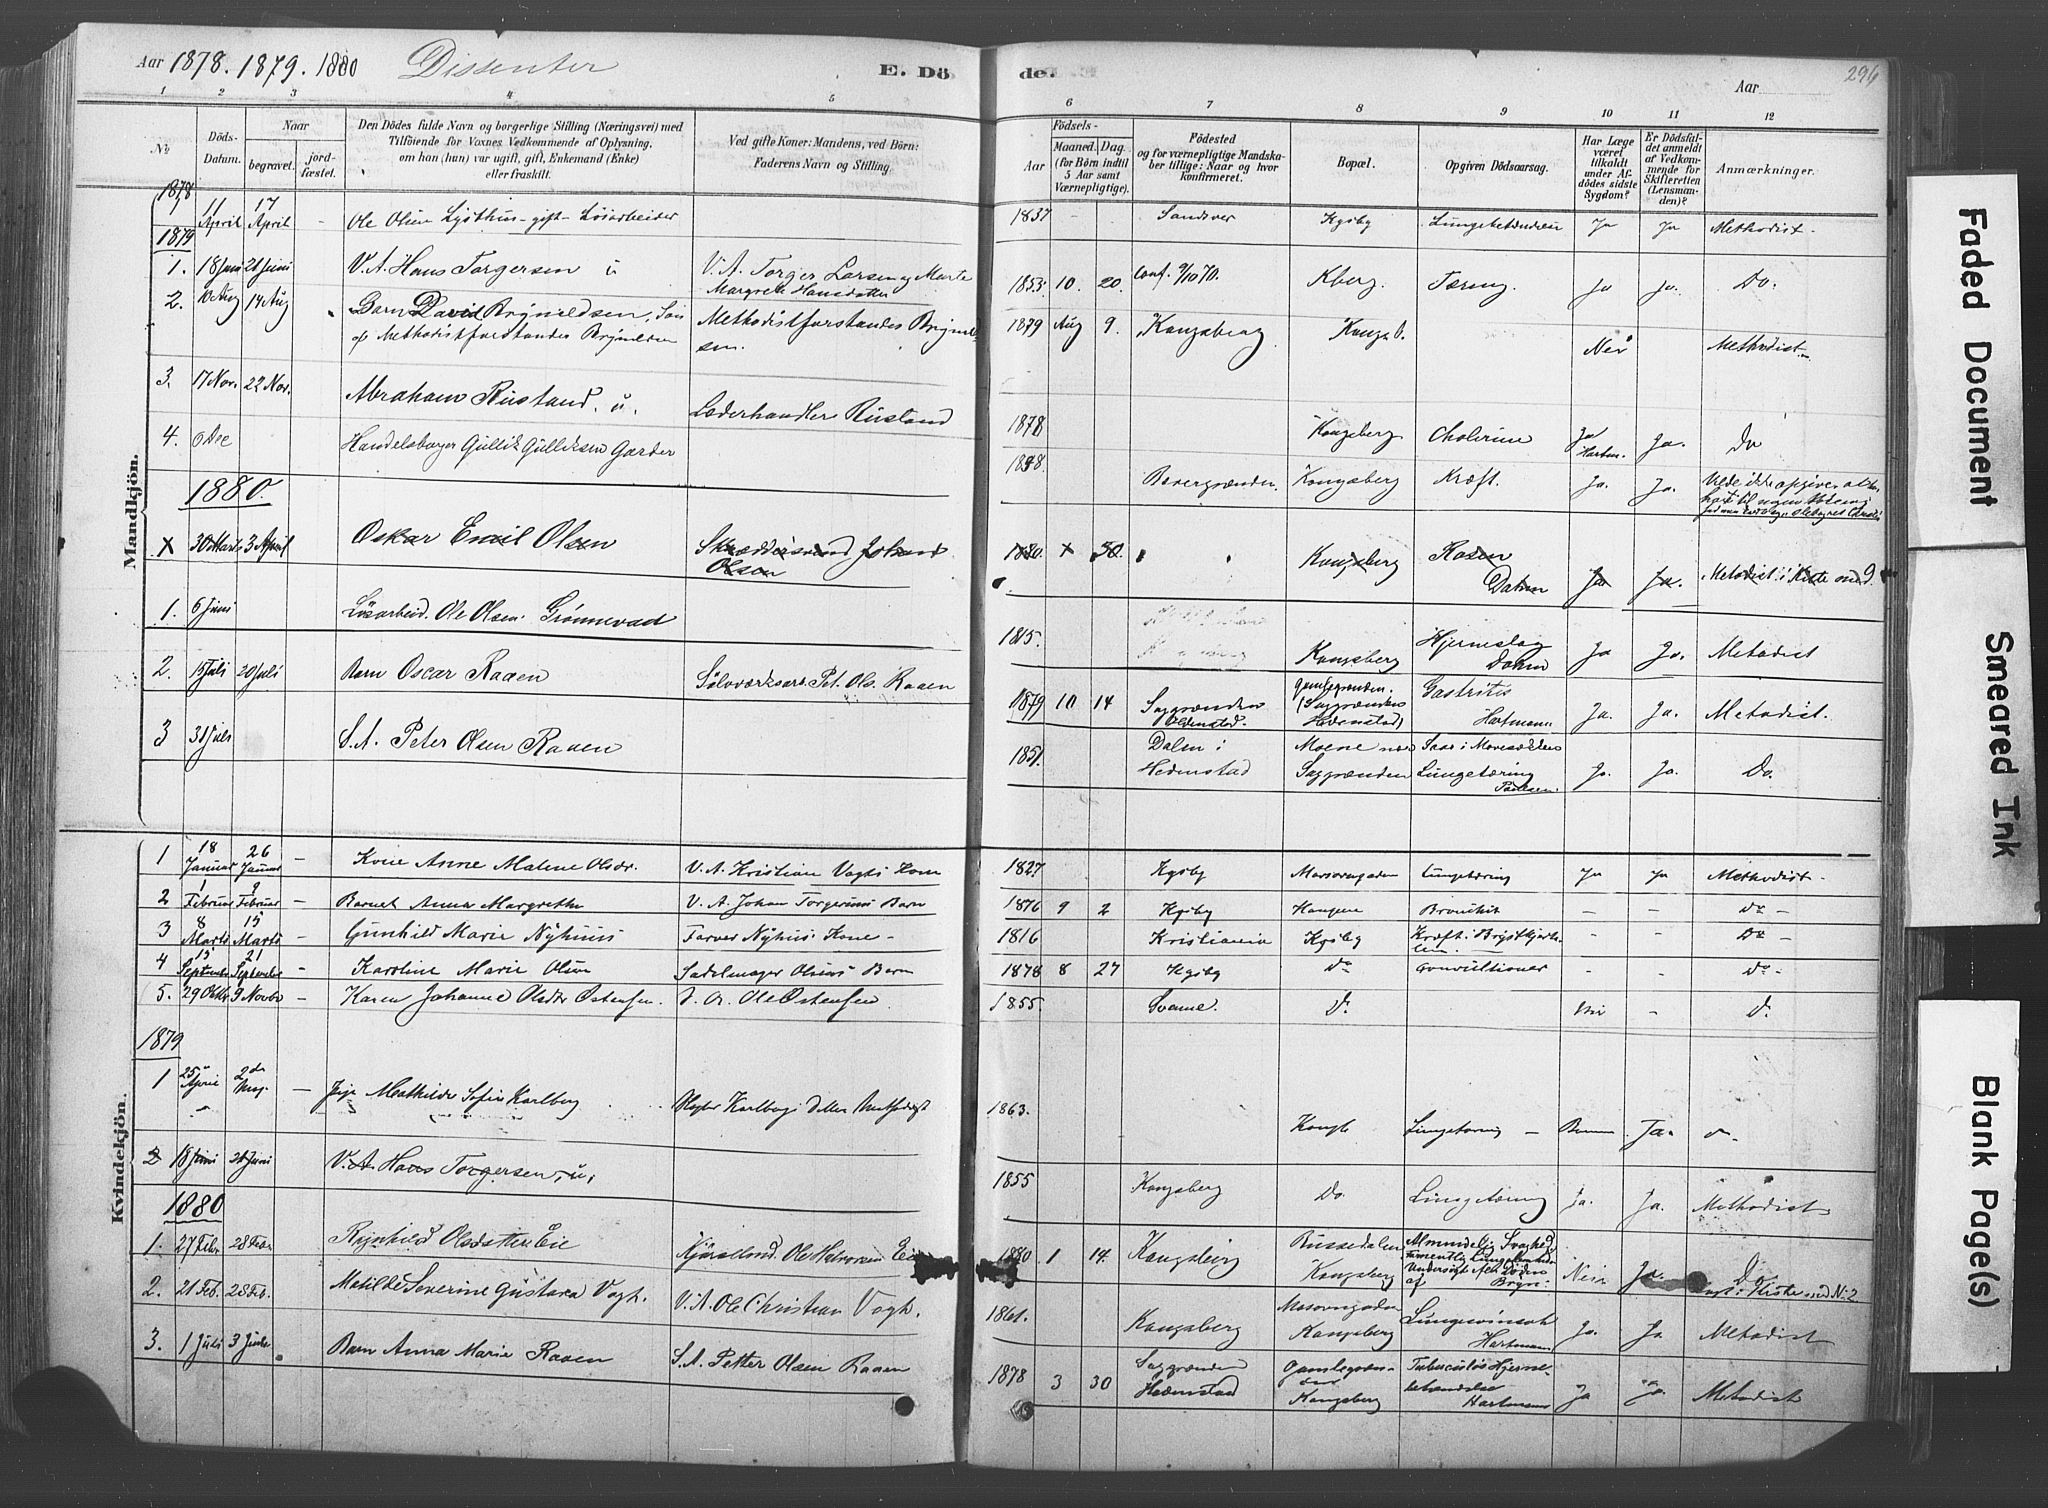 Aar 1878. 1879. 1880 Dissenter E. Dö
de. Aar 296
1 2 3 4 5 6 7 8 9 10 11 12
No
Döds-Datum.
Naar
begravet.
jord-fæstet.
Den Dödes fulde Navn og borgerlige Stilling (Næringsvei) med
Tilföiende for Voxnes Vedkommende af Oplysning,
om han (hun) var ugift, gift, Enkemand (Enke)
eller fraskilt.
Ved gifte Koner: Mandens, ved Börn:
Faderens Navn og Stilling.
Födsels-
Aar
Maaned. Dag.
(for Börn indtil
5 Aar samt
Værnepligtige).
Födested
og for værnepligtige Mandska-
ber tillige: Naar og hvor
konfirmeret.
Bopæl.
Opgiven Dödsaarsag.
Har Læge
været
tilkaldt
under Af-
dödes sidste
Sygdom?
Er Dödsfal-
det anmeldt
af Vedkom-
mende for
Skifteretten
(Lensman-
den)?
Anmærkninger.
Mandkjön.
1878
11 April 17 April - Ole Olsen Lysthus gift Løsarbeider 1837 - - Sandsver Kgsby Lungebetændelse Ja Ja Methodist
1879
1. 18 Juni 21 Juni V.A. Hans Torgersen u V.A. Torger Larsen og Marte
Margrete Hansdatter 1853 10. 20. conf. 9/10 70. Kberg. Tæring Ja Ja. Do.
2. 10 Aug 14 Aug Barn David Brynildsen, Søn
af Methodistforstander Brynildsen Methodistforstander Brynild-
sen. 1879 Aug 9. Kongsberg Kongsb. Nei Methodist
3. 17 Nov. 22 Nov. Abraham Rustand. u. Læderhandler Rustand 1878 Kongsberg Cholerine Ja Hartm. Ja. Do
4. 6 Dec Handelsborger Gullik Gulliksen Garder Bævergrænden Kongsberg Kræft. Ja. Ja. Vilde ikke opgive
1880.
X 30 Marts 3 April Oskar Emil Olsen Skræddersvend Johan
Olsen 1880. X 30. Kongsberg Rosen
Dahm Ja Ja. Metodist i Kiste med 9.
1. 6 Juni Løsarbeid. Ole Olsen Grønnevad 1815. Kongsberg Hjerneslag
Dahm Ja Ja. Metodist
2. 15 Juli 20 Juli Barn Oscar Raaen Sølvværksarb. Pet. Ols. Raaen 1879 10 14 Saggrænden
Hedenstad. Gamlegrænden.
(Saggrænden
Hedenstad) Gastritis
Hartmann Ja. Ja. Metodist.
3 31 Juli S.A. Peter Olsen Raaen 1851. Dalen i
Hedenstad Moene nær
Saggrænden Saar i Mavesækken
Lungetæring Ja. Ja. Do.
Kvindekjön.
1 18 Januar 26 Januar - Kone Anne Malene Olsdr. V.A. Kristian Vogts Kone 1827 Kgsby Lungetæring Ja Ja Methodist
2 1 Februar 9 Februar - Barnet Anna Margrethe V.A. Johan Torgersens Barn 1876 9 2 Kgsby Haugene Bronchit - - Do -
3 8 Marts 15 Marts - Gunhild Marie Nyhuus Farver Nyhus Kone - 1816 Kristiania Kgsby Kræft i Brystkjert-
len - - Do -
4 15 September 21 September - Karoline Marie Olsen Sadelmager Olsens Barn 1878 8 27 Kgsby Do Convultioner - - Do -
5. 29 Oktbr 9 Novbr - Karen Johanne Olsdr Østensen. V. A. Ole Østensen 1855 Svene. Do. Nei - Do.
1879
1 25 April 2den Maj - Pige Mathilde Sofie Karlberg 1863. Kongb. Lungetæring - Ja.
2 18 Juni 21 Juni V.A. Hans Torgersen, u, 1855 Kongsberg Do. Lungetæring Ja. Ja. Methodist
1880
1. 27 Febr. 28 Febr. Ragnhild Olsdatter Eie Kjørselmd. Ole Halvorsen Eie 1880 1 14. Kongsberg Bussedalen
Kongsberg Almindelig Svaghed Nei Ja. Do
i Kiste med No 2
2. 21 Feb. 28 Feb. Matilde Severine Gustava Vogt. V.A. Ole Christian Vogt. 1861. Kongsberg Kongsberg Lungesvindsot
Hartmann Ja. Ja Metodist
3. 1 Juli 3 Juli Barn Anna Marie Raaen S.A. Petter Olsen Raaen 1878 3 30 Saggrænden
Hedenstad Gamlegræn-
den
Kongsberg Tuberculøs Hjerne-
betændelse
Hartmann Ja Ja. Metodist
Faded Document
Smeared Ink
Blank Page(s)